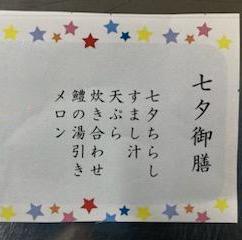 七夕御膳
七夕ちらし
すまし汁
天ぷら
炊き合わせ
鱧の湯引き
メロン